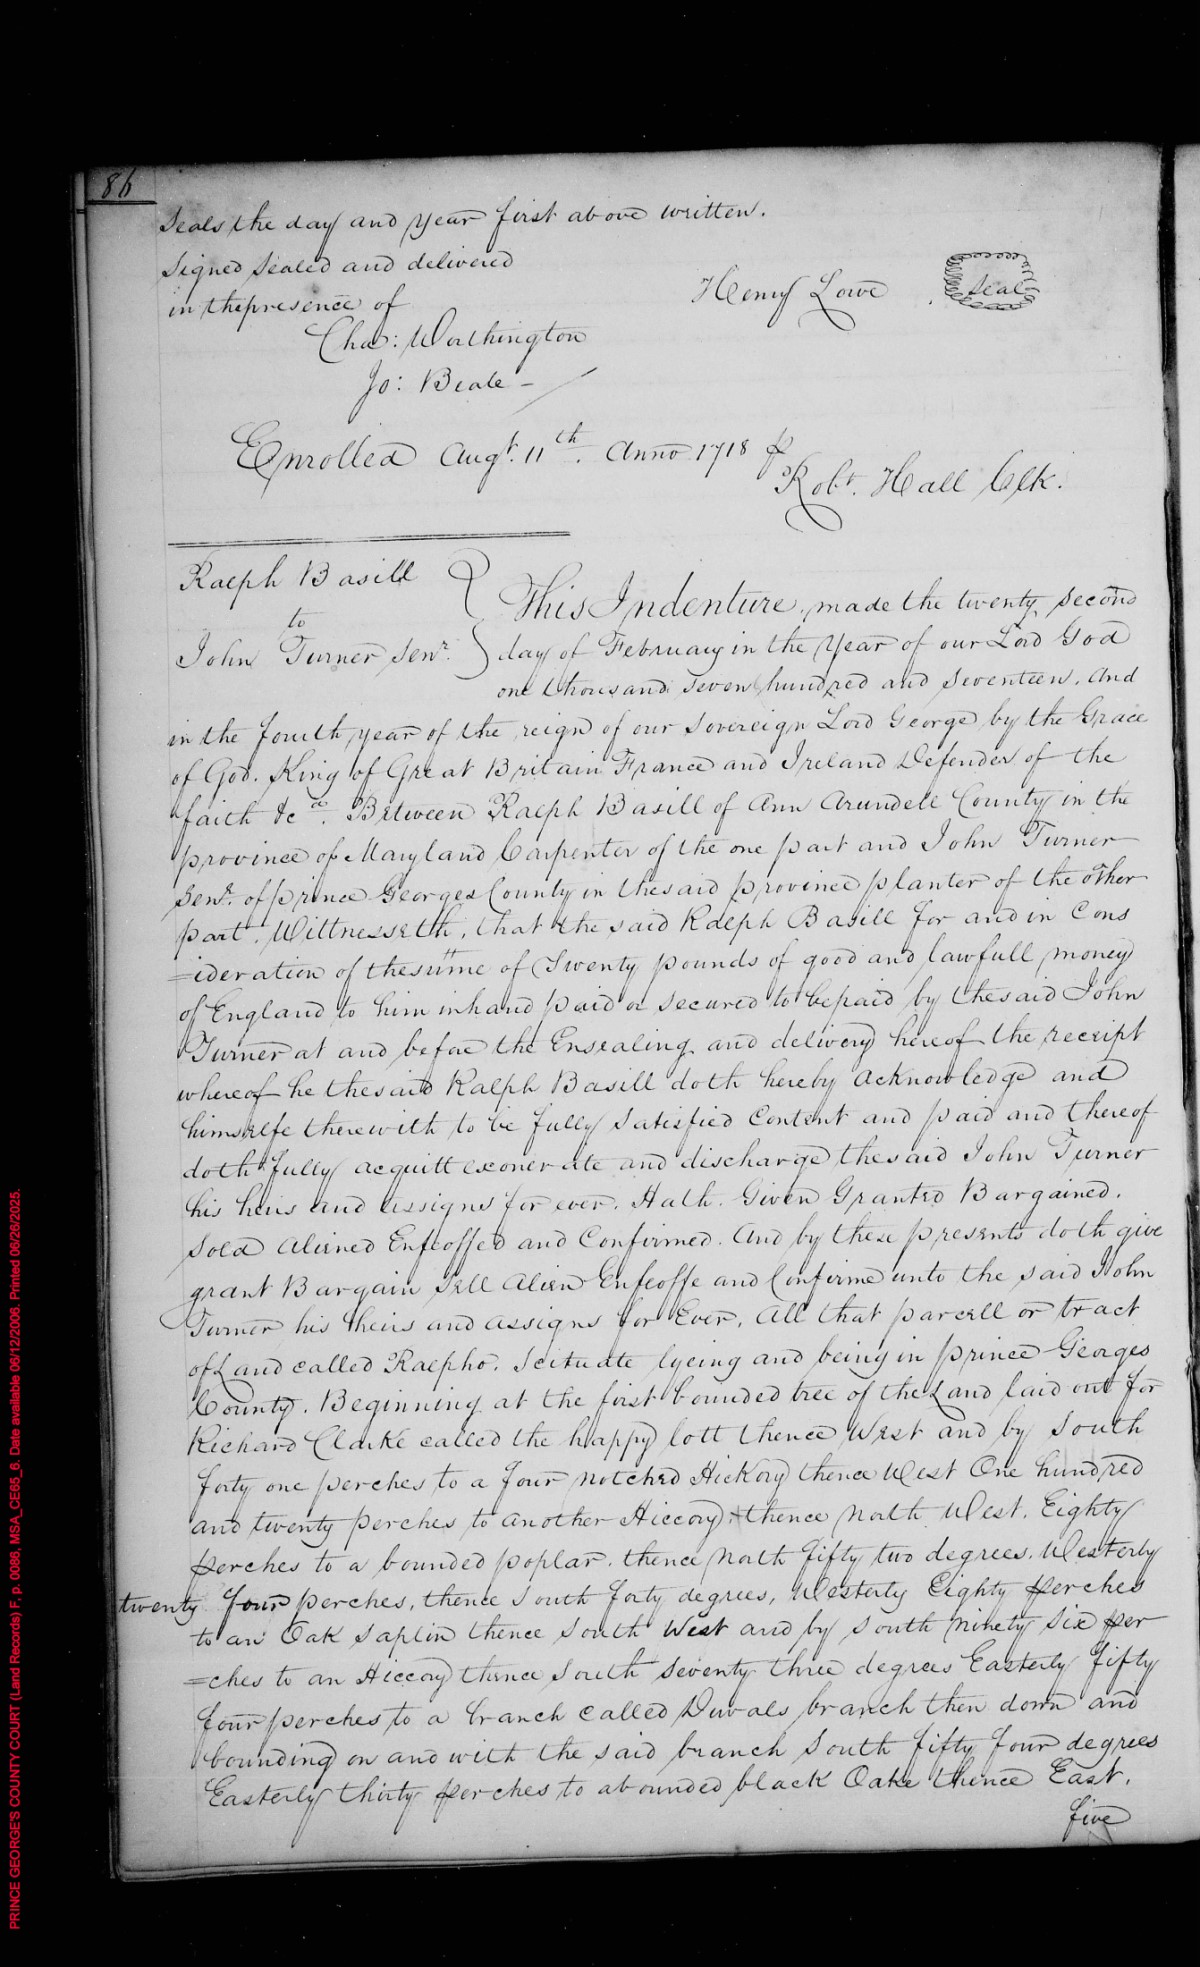 86
Seals the day and year first above written.
Signed Sealed and delivered
in the presence of
Henry Lowe
Seal
Cha: Worthington
Jo: Beale -
Enrolled Augt. 11th. Anno 1718 P
Robt. Hall Clk.
Ralph Basill
to
John Turner Senr.
This Indenture, made the twenty second
day of February in the year of our Lord God
one thousand seven hundred and seventeen. And
in the fourth year of the reign of our Sovereign Lord George by the Grace
of God. King of Great Britain France and Ireland Defender of the
faith &ca. Between Ralph Basill of Ann Arundell County in the
province of Maryland Carpenter of the one part and John Turner
Senr. of prince Georges County in the said province planter of the other
part. Wittnesseth, that the said Ralph Basill for and in Cons
=ideration of the summe of Twenty pounds of good and lawfull money
of England to him in hand paid or secured to be paid by the said John
Turner at and before the Ensealing and delivery hereof the receipt
whereof he the said Ralph Basill doth hereby acknowledge and
himselfe therewith to be fully satisfied Content and paid and thereof
doth fully acquitt exonerate and discharge the said John Turner
his heirs and assigns for ever. Hath. Given Granted Bargained.
Sold Aliened Enfeoffed and Confirmed. And by these presents doth give
grant Bargain Sell Alien Enfeoffe and Confirme unto the said John
Turner his heirs and assigns for Ever, All that parcell or tract
of Land called Ralpho. Scituate lyeing and being in prince Georges
County. Beginning at the first bounded tree of the Land laid out for
Richard Clarke called the happy lott thence West and by South
forty one perches to a four notched Hickory thence West One hundred
and twenty perches to another Hiccory thence North West. Eighty
perches to a bounded poplar. thence North fifty two degrees. Westerly
twenty four perches, thence South forty degrees, Westerly Eighty perches
to an Oak saplin thence South West and by South ninety six per
=ches to an Hiccory thence South seventy three degrees Easterly fifty
four perches to a branch called Duvals branch then down and
bounding on and with the said branch South fifty four degrees
Easterly thirty perches to a bounded black Oake thence East.
five
PRINCE GEORGE'S COUNTY COURT (Land Records) F, p. 0086, MSA_CE65_6. Date available 06/12/2006. Printed 06/26/2025.